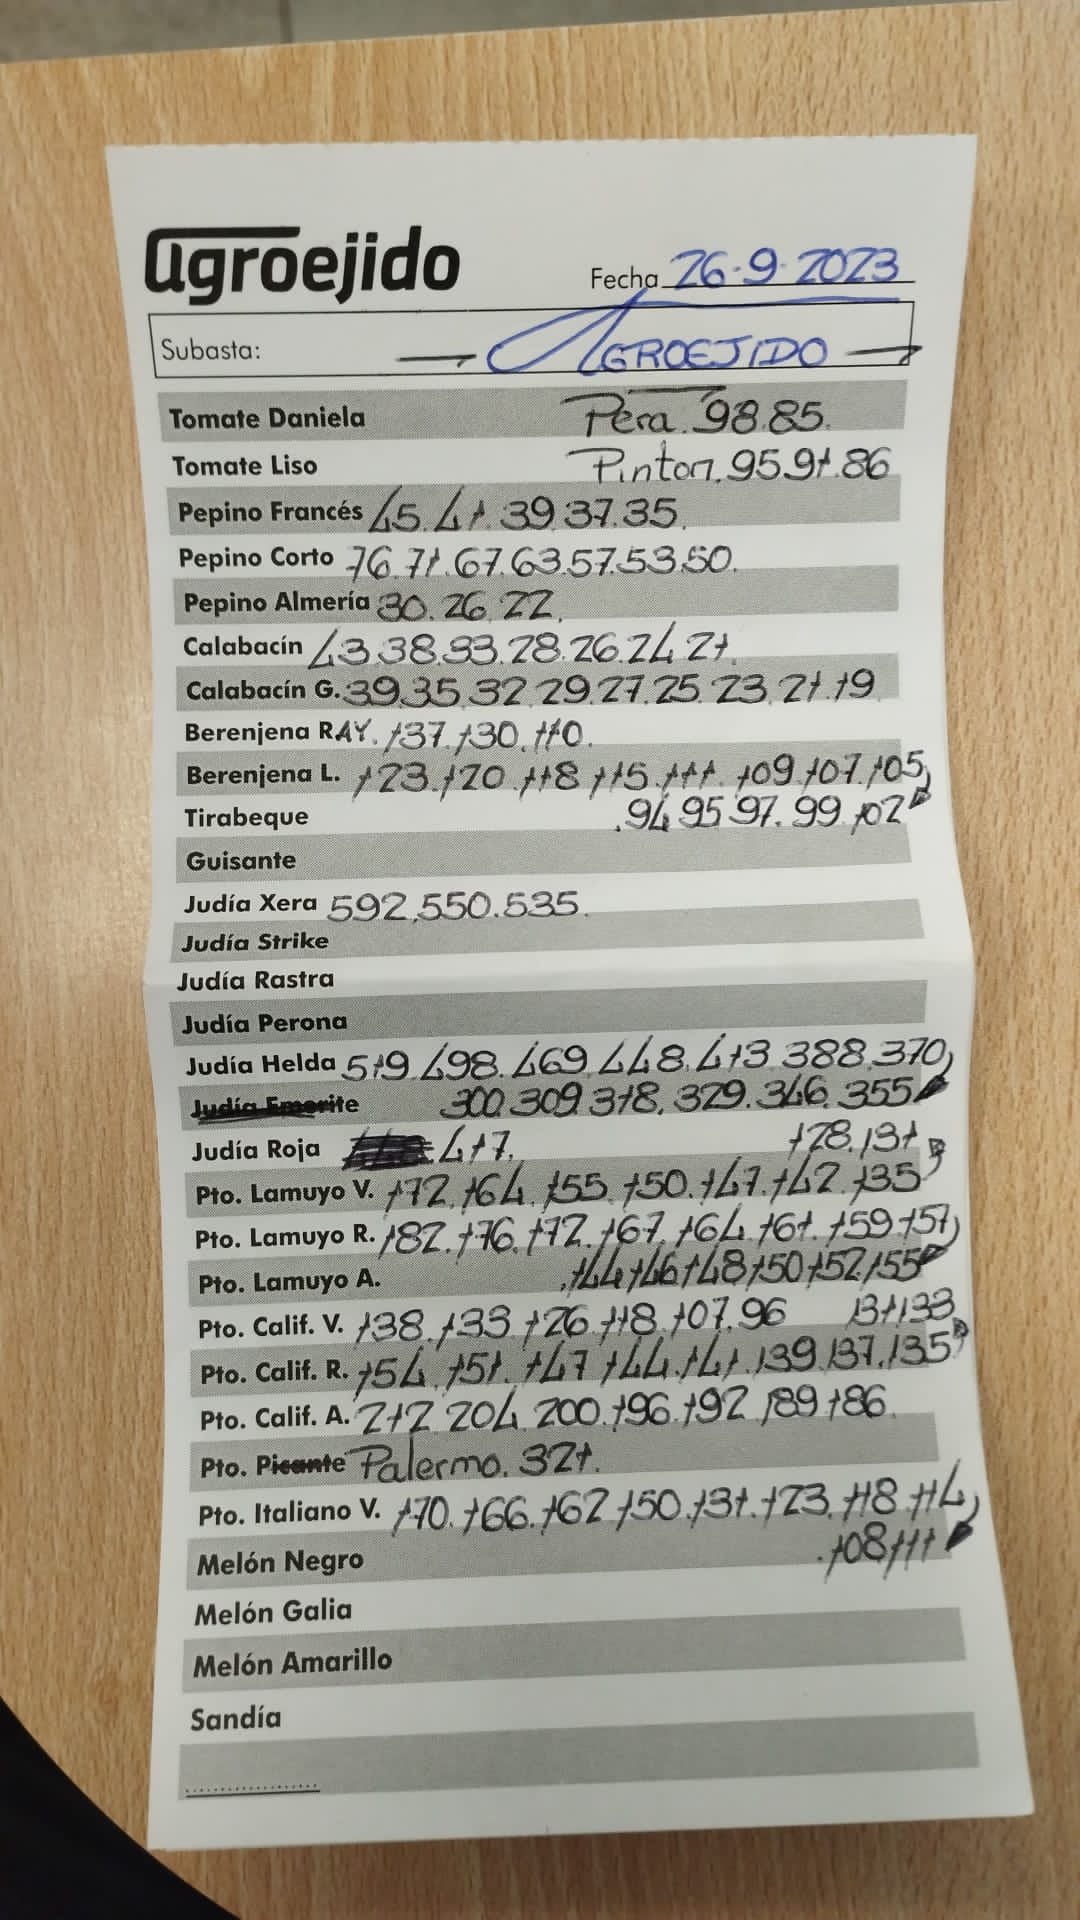 agroejido
Fecha 26-9-2023
Subasta: AGROEJIDO
Tomate Daniela Pera. 98.85.
Tomate Liso Pinton. 95.91.86
Pepino Francés 45.41.39.37.35.
Pepino Corto 76.71.67.63.57.53.50.
Pepino Almería 30.26.22.
Calabacín 43.38.33.28.26.24.21.
Calabacín G. 39.35.32.29.27.25.23.21.19
Berenjena RAY. 137.130.110.
Berenjena L. 123.120.118.115.111.109.107.105
Tirabeque .94.95.97.99.102
Guisante
Judía Xera 592.550.535.
Judía Strike
Judía Rastra
Judía Perona
Judía Helda 519.498.469.448.413.388.370
Judía Emerite 300.309.318.329.346.355
Judía Roja 417. 128.131
Pto. Lamuyo V. 172.164.155.150.147.142.135
Pto. Lamuyo R. 182.176.172.167.164.161.159.157
Pto. Lamuyo A. .144.146.148.150.152.155
Pto. Calif. V. 138.133.126.118.107.96 131.133
Pto. Calif. R. 154.151.147.144.141.139.137.135
Pto. Calif. A. 212.204.200.196.192.189.186.
Pto. Picante Palermo. 321.
Pto. Italiano V. 170.166.162.150.131.123.118.114
Melón Negro .108.111
Melón Galia
Melón Amarillo
Sandía